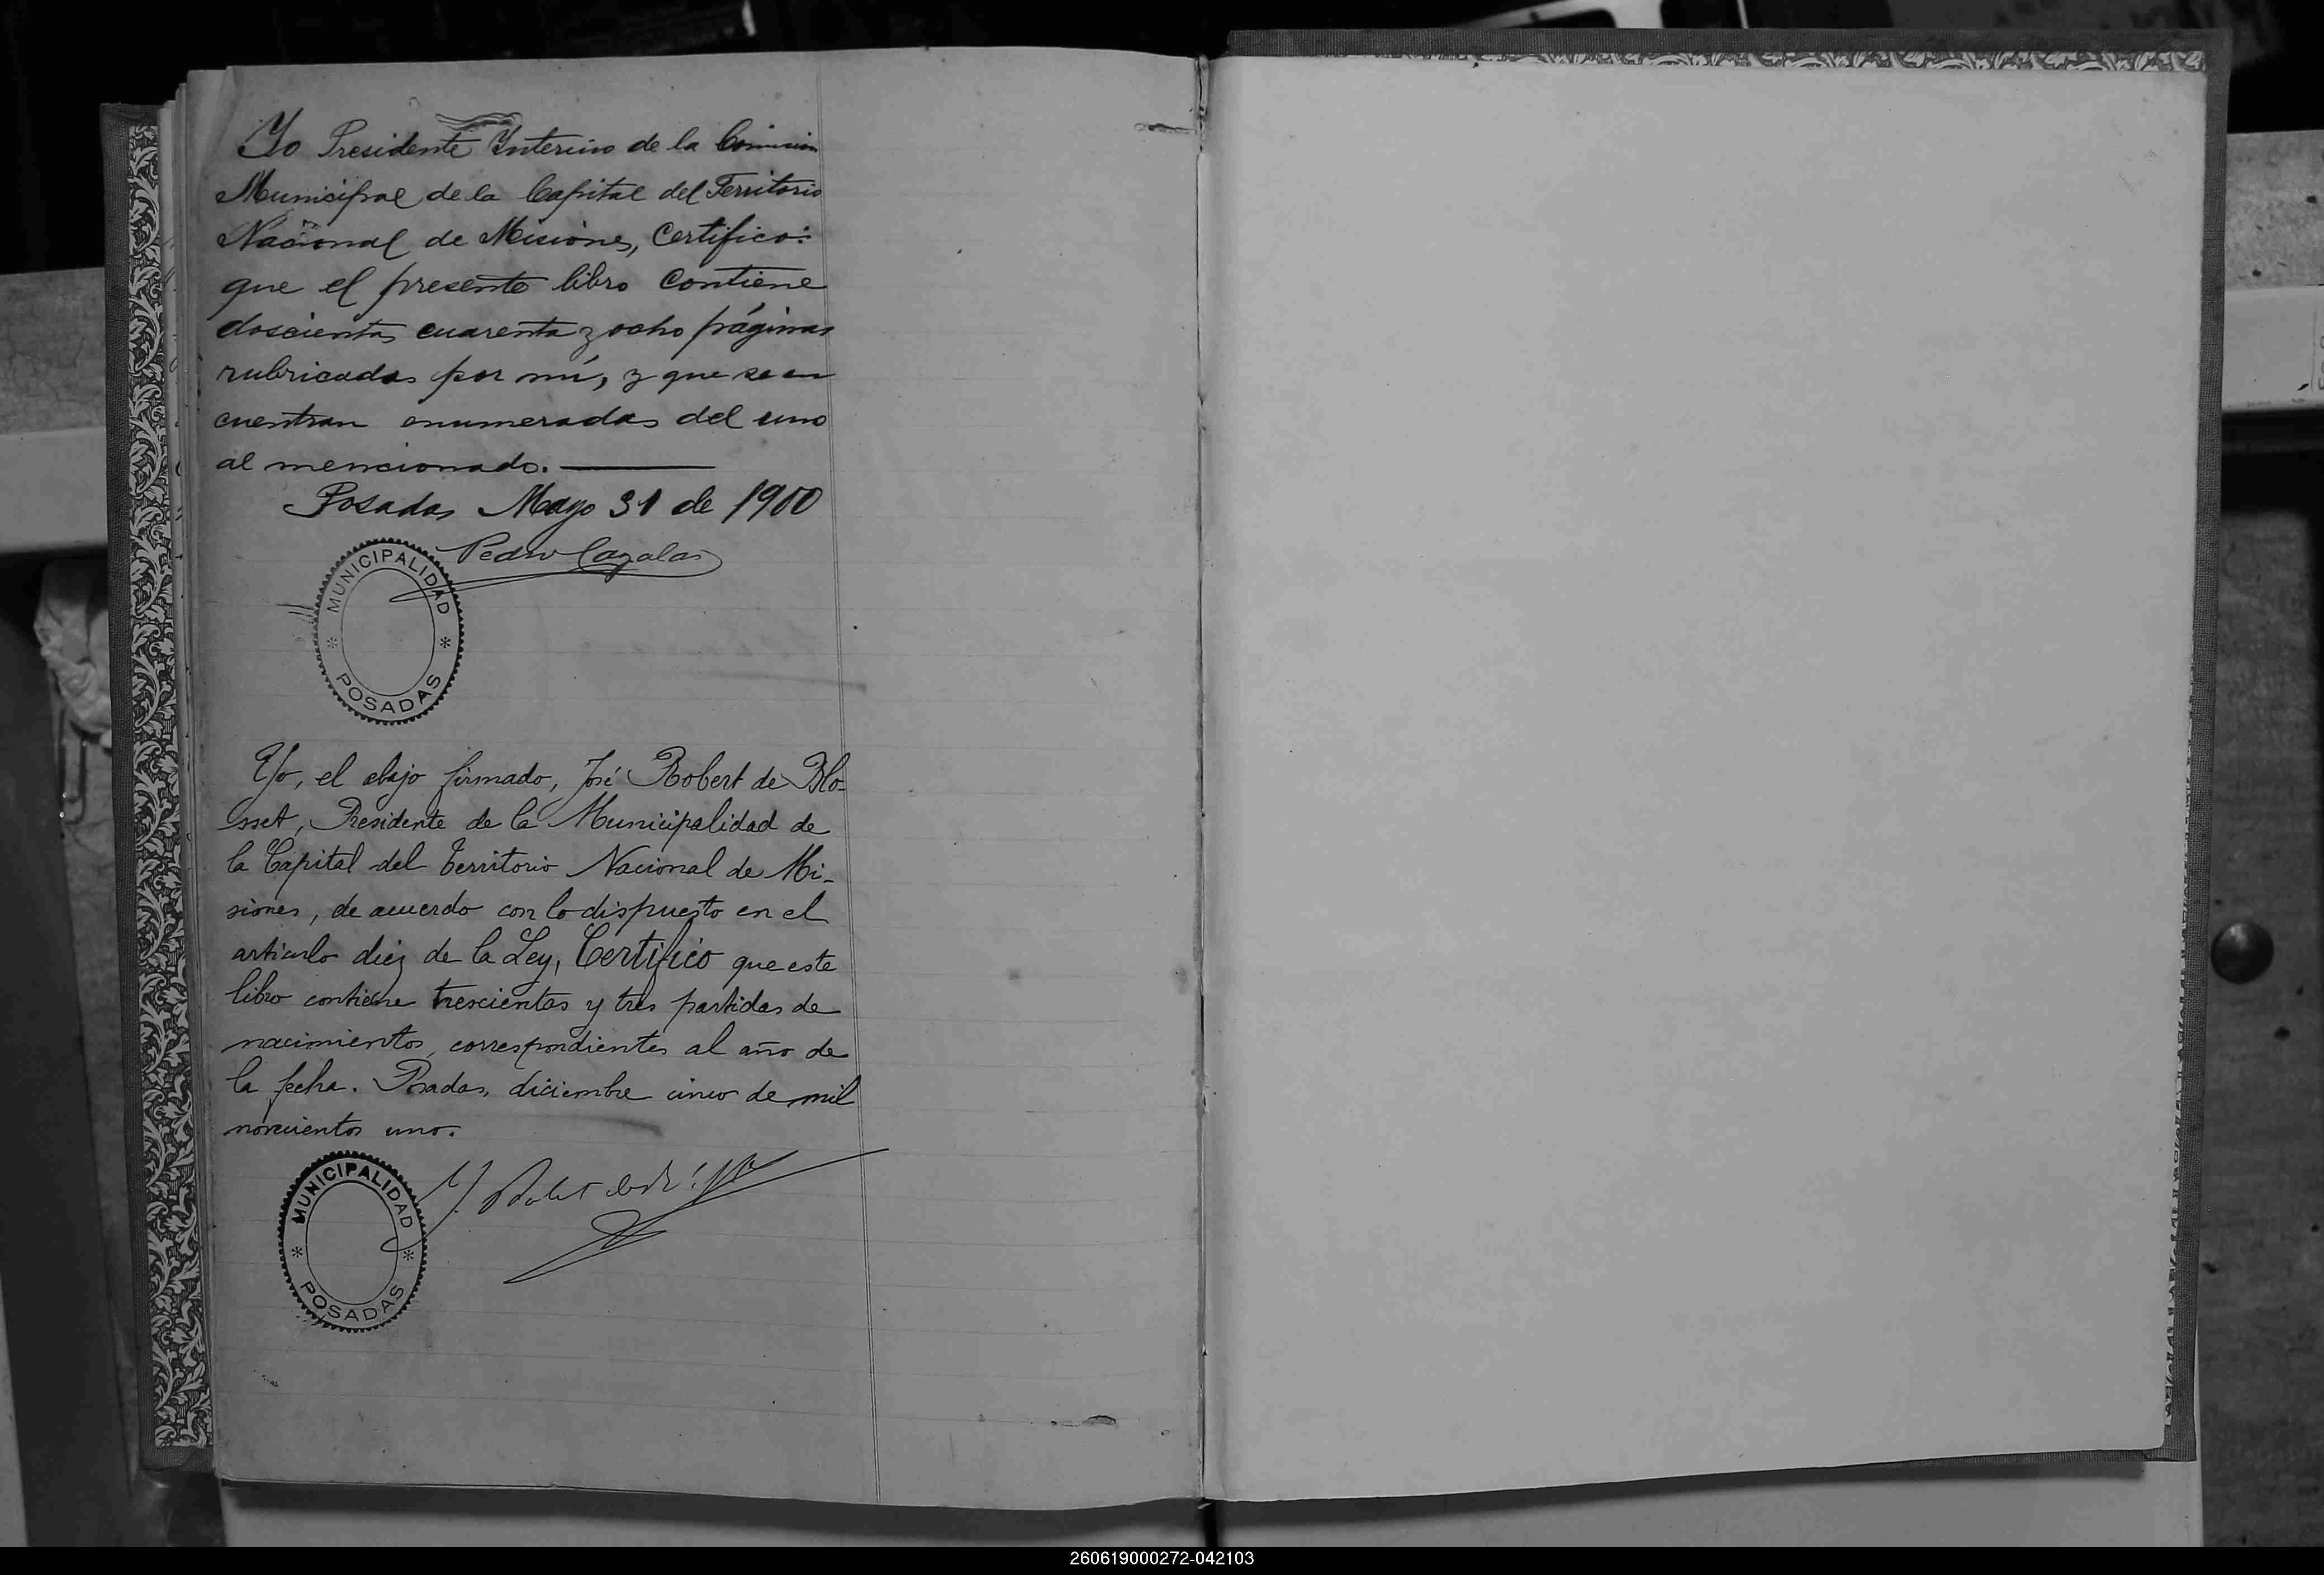 Yo Presidente Interino de la Comision
Municipal de la Capital del Territorio
Nacional de Misiones, Certifico:
que el presente libro contiene
doscientas cuarenta y ocho páginas
rubricadas por mí, y que se en
cuentran enumeradas del uno
al mencionado.
Posadas Mayo 31 de 1900
Pedro Cazalas
MUNICIPALIDAD
POSADAS
Yo, el abajo firmado, José Robert de Blo-
sset, Presidente de la Municipalidad de
la Capital del Territorio Nacional de Mi-
siones, de acuerdo con lo dispuesto en el
articulo diez de la Ley, Certifico que este
libro contiene trescientas y tres partidas de
nacimientos correspondientes al año de
la fecha. Posadas, diciembre cinco de mil
novecientos uno.
MUNICIPALIDAD
POSADAS
260619000272-042103